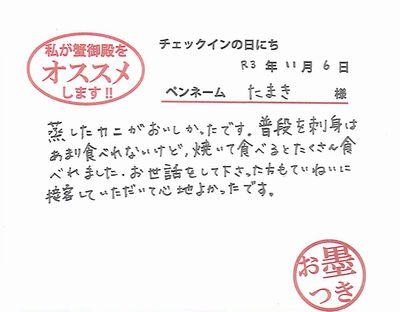 私が蟹御殿を
オススメ
します!!
チェックインの日にち
R3 年 11 月 6 日
ペンネーム たまき 様
蒸したカニがおいしかったです。普段を刺身は
あまり食べれないけど、焼いて食べるとたくさん食
べれました。お世話をして下さった方もていねいに
接客していただいて心地よかったです。
お墨
つき